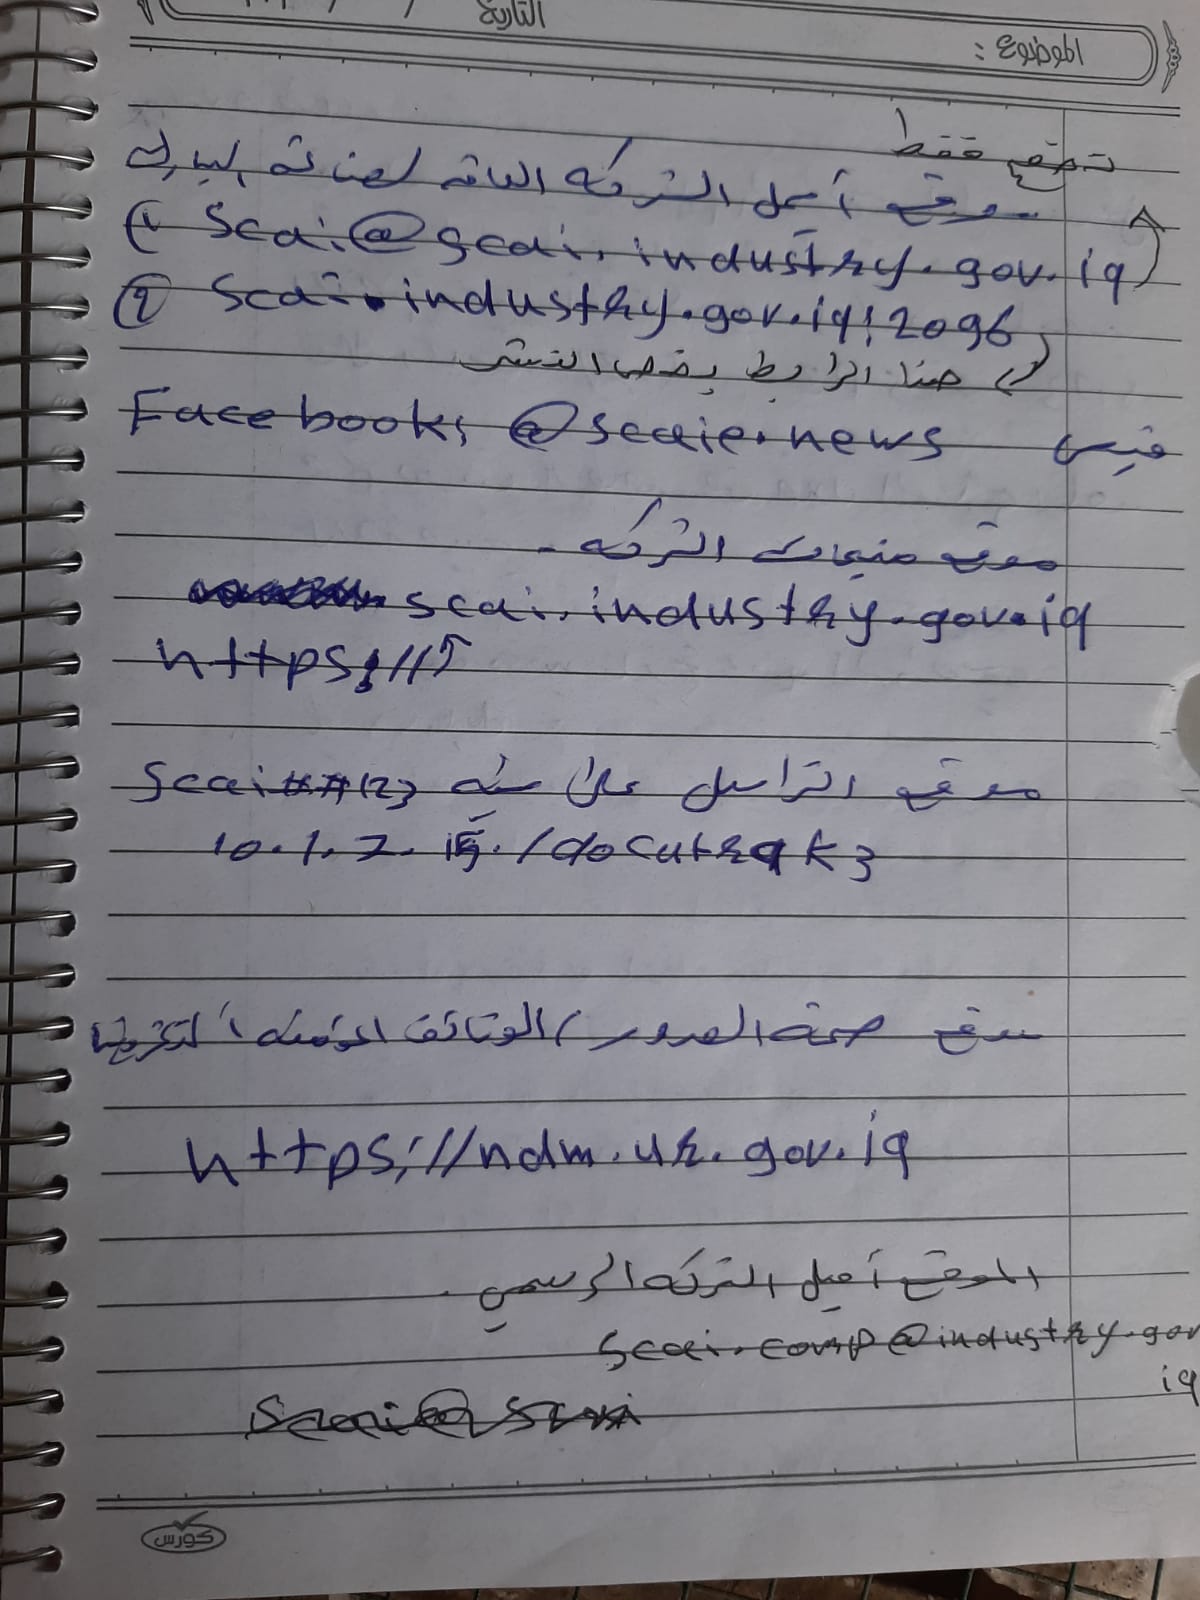 التاريخ / /
الموضوع :
توضع فقط
موقع أميل الشركة العامة لصناعة السيارات
1) scai@scai.industry.gov.iq
2) scai.industry.gov.iq:2096
هنا الرابط يخص النشر
Facebook: @scaie.news فيس
موقع منتجات الشركه -
scai.industry.gov.iq
https://
موقع التراسل على شبكه scai##123
10.1.7. /docutrak3
موقع صحة الصدور / الوثائق المؤمنه
https://ndm.ur.gov.iq
الموقع أميل الشركه الرسمي .
scai.comp@industry.gov
iq
كورس